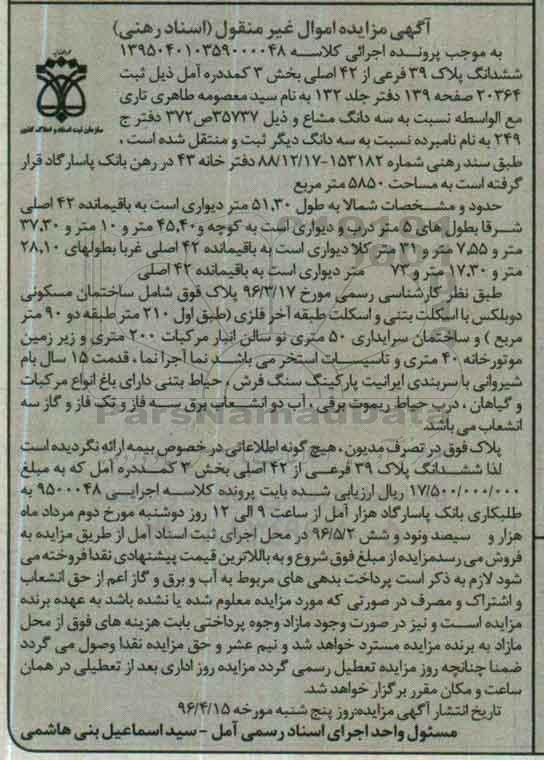 آگهی مزایده اموال غیر منقول (اسناد رهنی)
به موجب پرونده اجرائی کلاسه ۱۳۹۵۰۴۰۱۰۳۵۹۰۰۰۰۴۸
ششدانگ پلاک ۳۹ فرعی از ۴۲ اصلی بخش ۳ کمدره آمل ذیل ثبت
۲۰۳۶۴ صفحه ۱۳۹ دفتر جلد ۱۳۲ به نام سید معصومه طاهری تاری
مع الواسطه نسبت به سه دانگ مشاع و ذیل ۳۵۷۳۷ص۳۷۲ دفتر ج
۲۴۹ به نام نامبرده نسبت به سه دانگ دیگر ثبت و منتقل شده است ،
طبق سند رهنی شماره ۱۵۳۱۸۲-۸۸/۱۲/۱۷ دفتر خانه ۴۳ در رهن بانک پاسارگاد قرار
گرفته است به مساحت ۵۸۵۰ متر مربع
حدود و مشخصات شمالا به طول ۵۱,۳۰ متر دیواری است به باقیمانده ۴۲ اصلی
شرقا بطول های ۵ متر درب و دیواری است به کوچه و۴۵,۴۰ متر و ۱۰ متر و ۳۷,۳۰
متر و ۷,۵۵ متر و ۳۱ متر کلا دیواری است به باقیمانده ۴۲ اصلی غربا بطولهای ۲۸,۱۰
متر و ۱۷,۳۰ متر و ۷۳ متر دیواری است به باقیمانده ۴۲ اصلی
طبق نظر کارشناسی رسمی مورخ ۹۶/۳/۱۷ پلاک فوق شامل ساختمان مسکونی
دوبلکس با اسکلت بتنی و اسکلت طبقه آخر فلزی (طبق اول ۲۱۰ متر طبقه دو ۹۰ متر
مربع ) و ساختمان سرایداری ۵۰ متری نو سالن انبار مرکبات ۲۰۰ متری و زیر زمین
موتورخانه ۴۰ متری و تاسیسات استخر می باشد نما آجرا نما ، قدمت ۱۵ سال بام
شیروانی با سربندی ایرانیت پارکینگ سنگ فرش ، حیاط بتنی دارای باغ انواع مرکبات
و گیاهان ، درب حیاط ریموت برقی ، آب دو انشعاب برق سه فاز و تک فاز و گاز سه
انشعاب می باشد.
پلاک فوق در تصرف مدیون ، هیچ گونه اطلاعاتی در خصوص بیمه ارائه نگردیده است
لذا ششدانگ پلاک ۳۹ فرعی از ۴۲ اصلی بخش ۳ کمدره آمل که به مبلغ
۱۷/۵۰۰/۰۰۰/۰۰۰ ریال ارزیابی شده بابت پرونده کلاسه اجرایی ۹۵۰۰۰۴۸ به
طلبکاری بانک پاسارگاد هزار آمل از ساعت ۹ الی ۱۲ روز دوشنبه مورخ دوم مرداد ماه
هزار و سیصد ونود و شش ۹۶/۵/۲ در محل اجرای ثبت اسناد آمل از طریق مزایده به
فروش می رسدمزایده از مبلغ فوق شروع و به بالاترین قیمت پیشنهادی نقدا فروخته می
شود لازم به ذکر است پرداخت بدهی های مربوط به آب و برق و گاز اعم از حق انشعاب
و اشتراک و مصرف در صورتی که مورد مزایده معلوم شده یا نشده باشد به عهده برنده
مزایده است و نیز در صورت وجود مازاد وجوه پرداختی بابت هزینه های فوق از محل
مازاد به برنده مزایده مسترد خواهد شد و نیم عشر و حق مزایده نقدا وصول می گردد
ضمنا چنانچه روز مزایده تعطیل رسمی گردد مزایده روز اداری بعد از تعطیلی در همان
ساعت و مکان مقرر برگزار خواهد شد.
تاریخ انتشار آگهی مزایده:روز پنج شنبه مورخه ۹۶/۴/۱۵
مسئول واحد اجرای اسناد رسمی آمل - سید اسماعیل بنی هاشمی
سازمان ثبت اسناد و املاک کشور
ParsNamadData